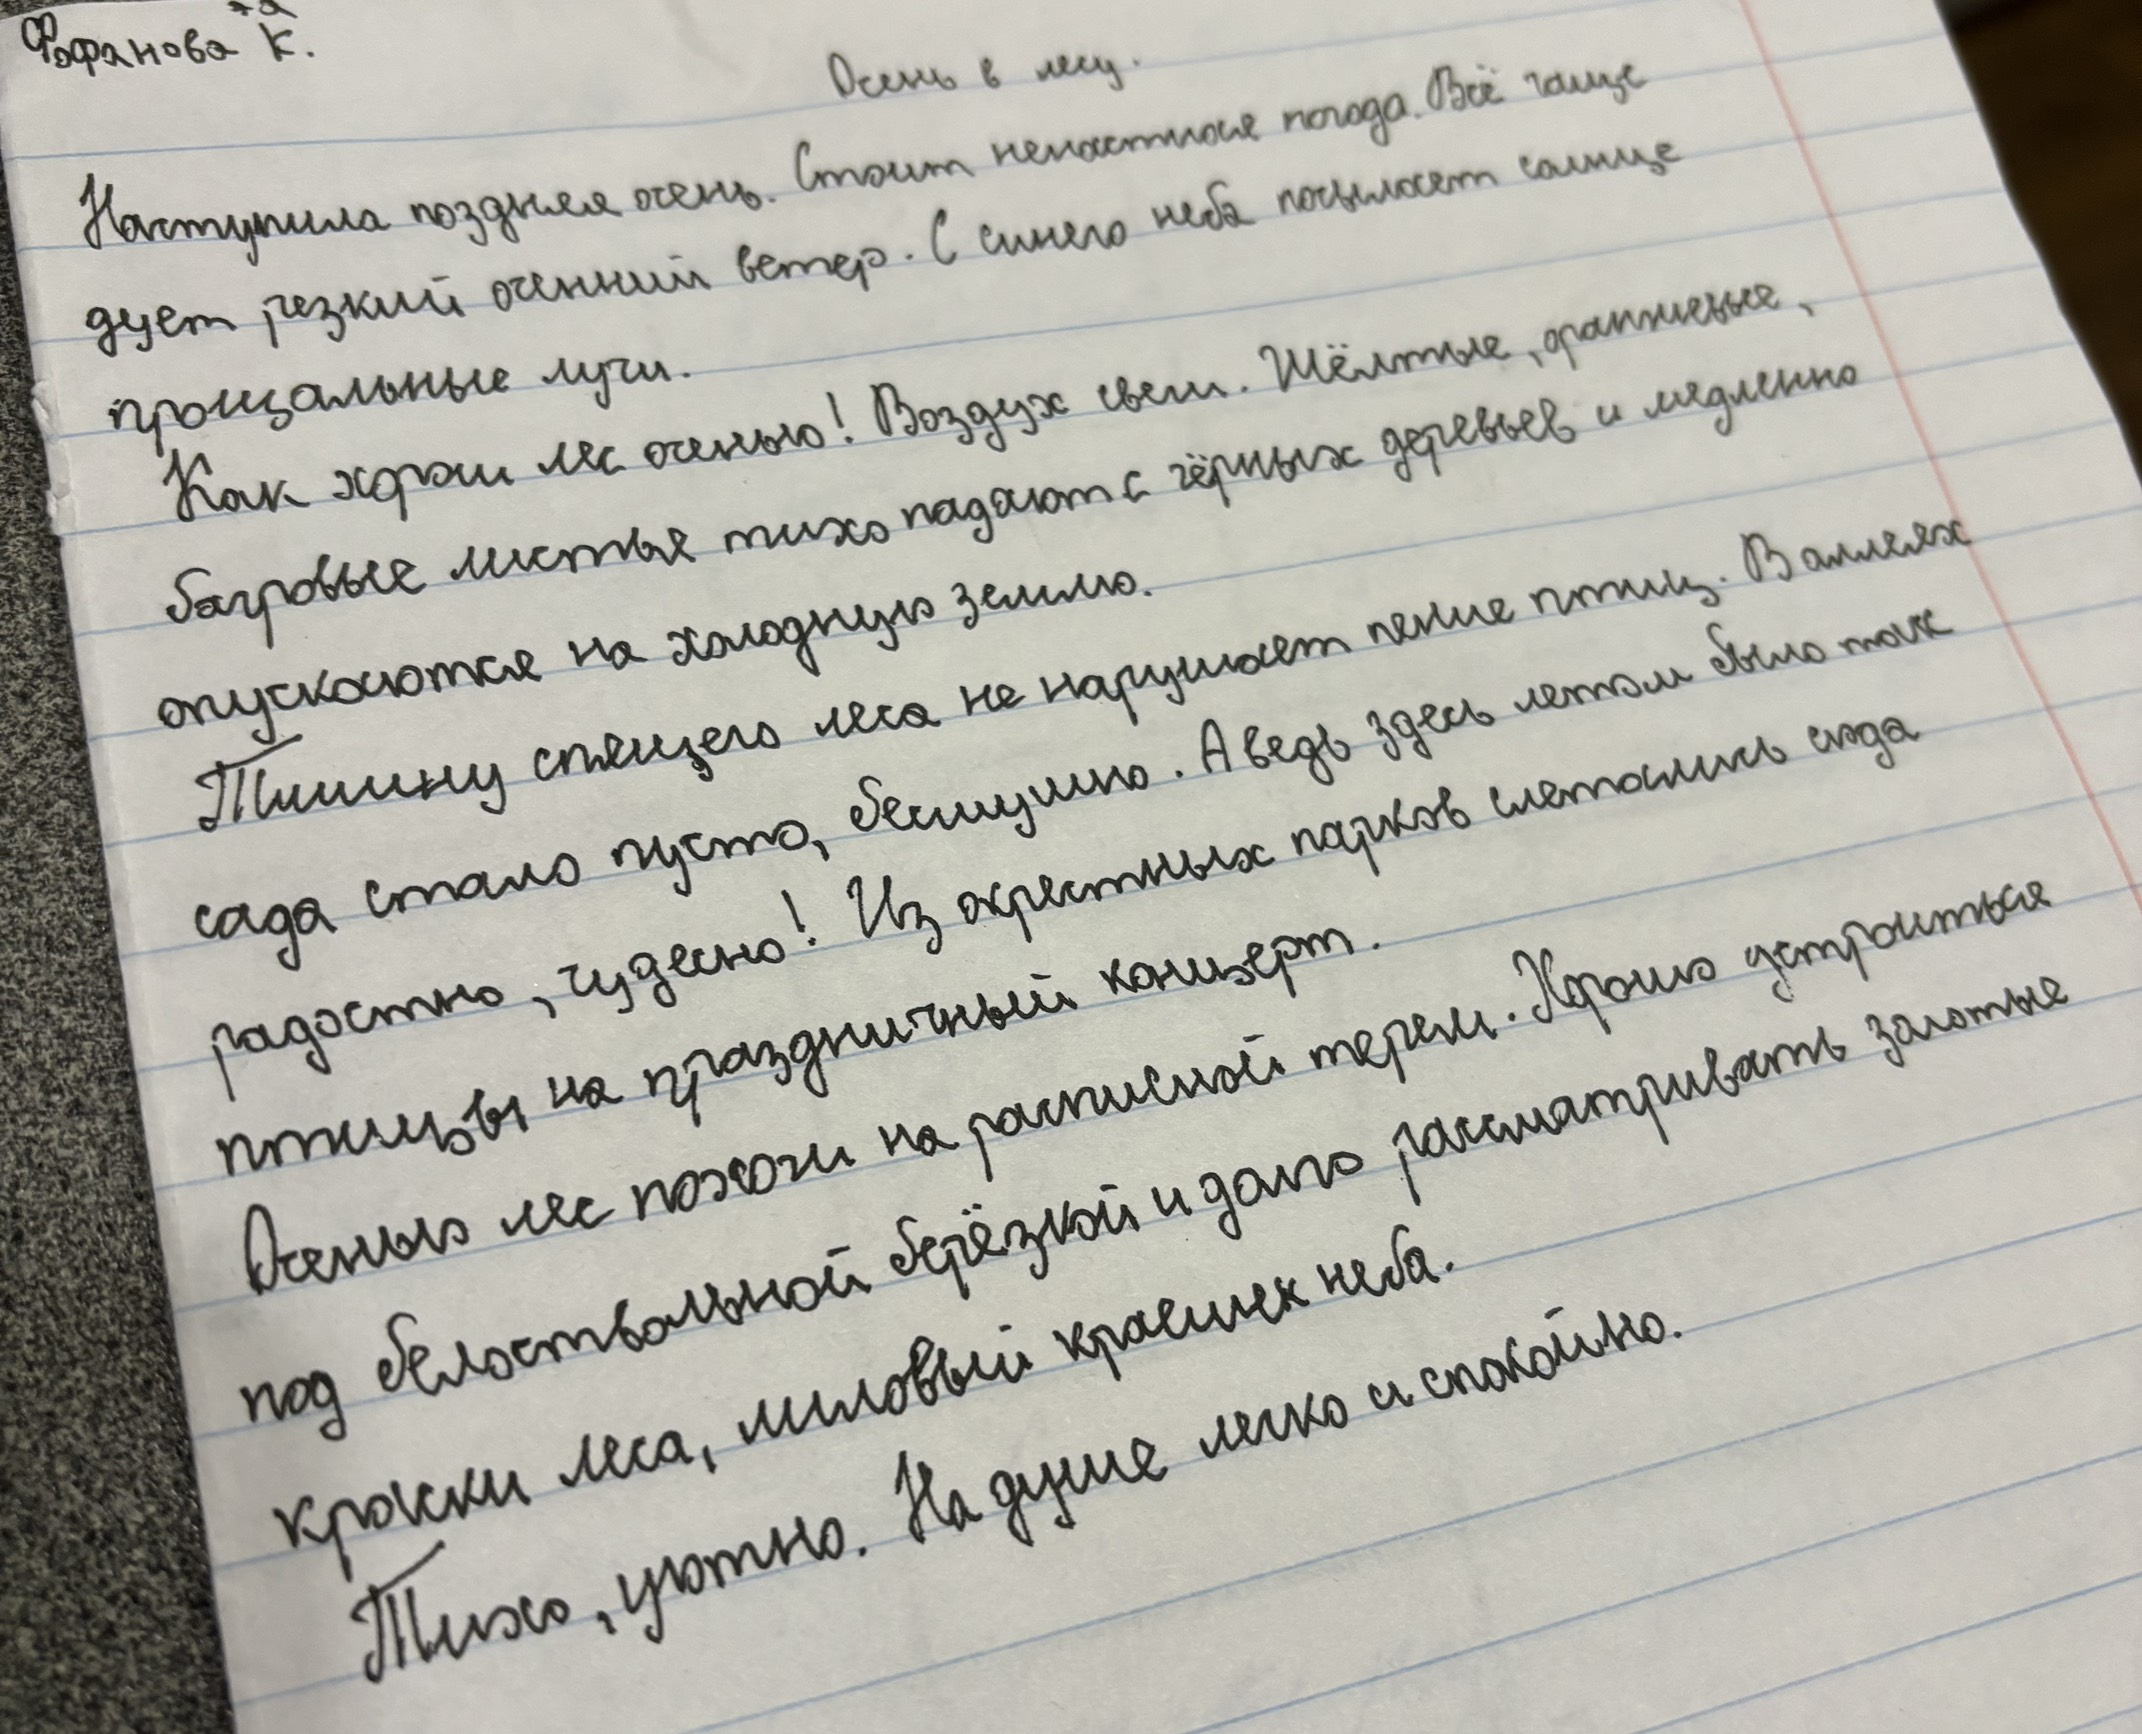 Фофанова К.
Осень в лесу.
Наступила поздняя осень. Стоит ненастная погода. Всё чаще
дует резкий осенний ветер. С синего неба посылает солнце
прощальные лучи.
Как хорош лес осенью! Воздух свеш. Жёлтые, оранжевые,
багровые листья тихо падают с чёрных деревьев и медленно
опускаются на холодную землю.
Тишину спящего леса не нарушает пение птиц. В аллеях
сада стало пусто, бесшумно. А ведь здесь летом было так
радостно, чудесно! Из окрестных парков слетались сюда
птицы на праздничный концерт.
Осенью лес похож на расписной терем. Хорошо устроиться
под белоствольной берёзкой и долго рассматривать золотые
краски леса, лиловый краешек неба.
Тихо, уютно. На душе легко и спокойно.